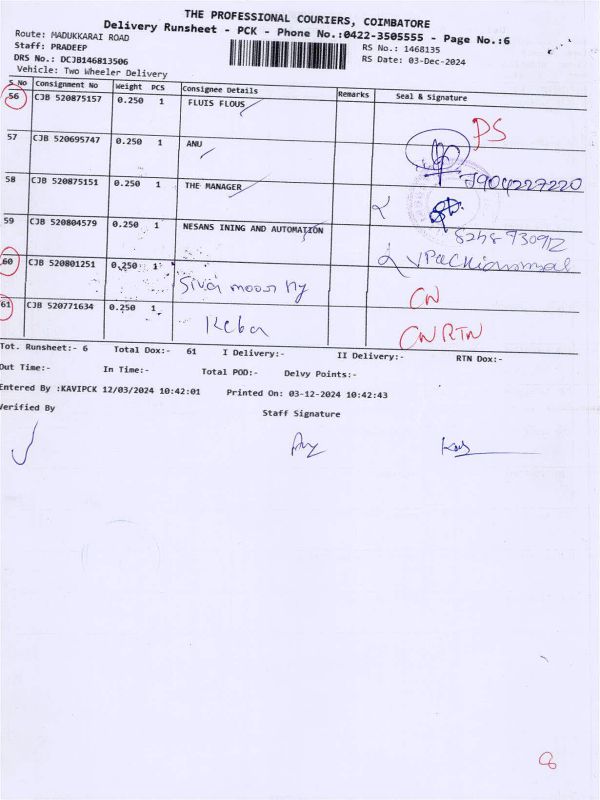 THE PROFESSIONAL COURIERS, COIMBATORE
Delivery Runsheet - PCK - Phone No.:0422-3505555 - Page No.:6
Route: MADUKKARAI ROAD
Staff: PRADEEP
DRS No.: DCJB146813506
Vehicle: Two Wheeler Delivery
RS No.: 1468135
RS Date: 03-Dec-2024
S.No Consignment No Weight PCS Consignee Details Remarks Seal & Signature
56 CJB 520875157 0.250 1 FLUIS FLOUS PS
57 CJB 520695747 0.250 1 ANU
7904227220
58 CJB 520875151 0.250 1 THE MANAGER
59 CJB 520804579 0.250 1 NESANS INING AND AUTOMATION
60 CJB 520801251 0.250 1 CN
61 CJB 520771634 0.250 1 CN RTN
Tot. Runsheet:- 6 Total Dox:- 61 I Delivery:- II Delivery:- RTN Dox:-
Out Time:- In Time:- Total POD:- Delvy Points:-
Entered By :KAVIPCK 12/03/2024 10:42:01 Printed On: 03-12-2024 10:42:43
Verified By Staff Signature